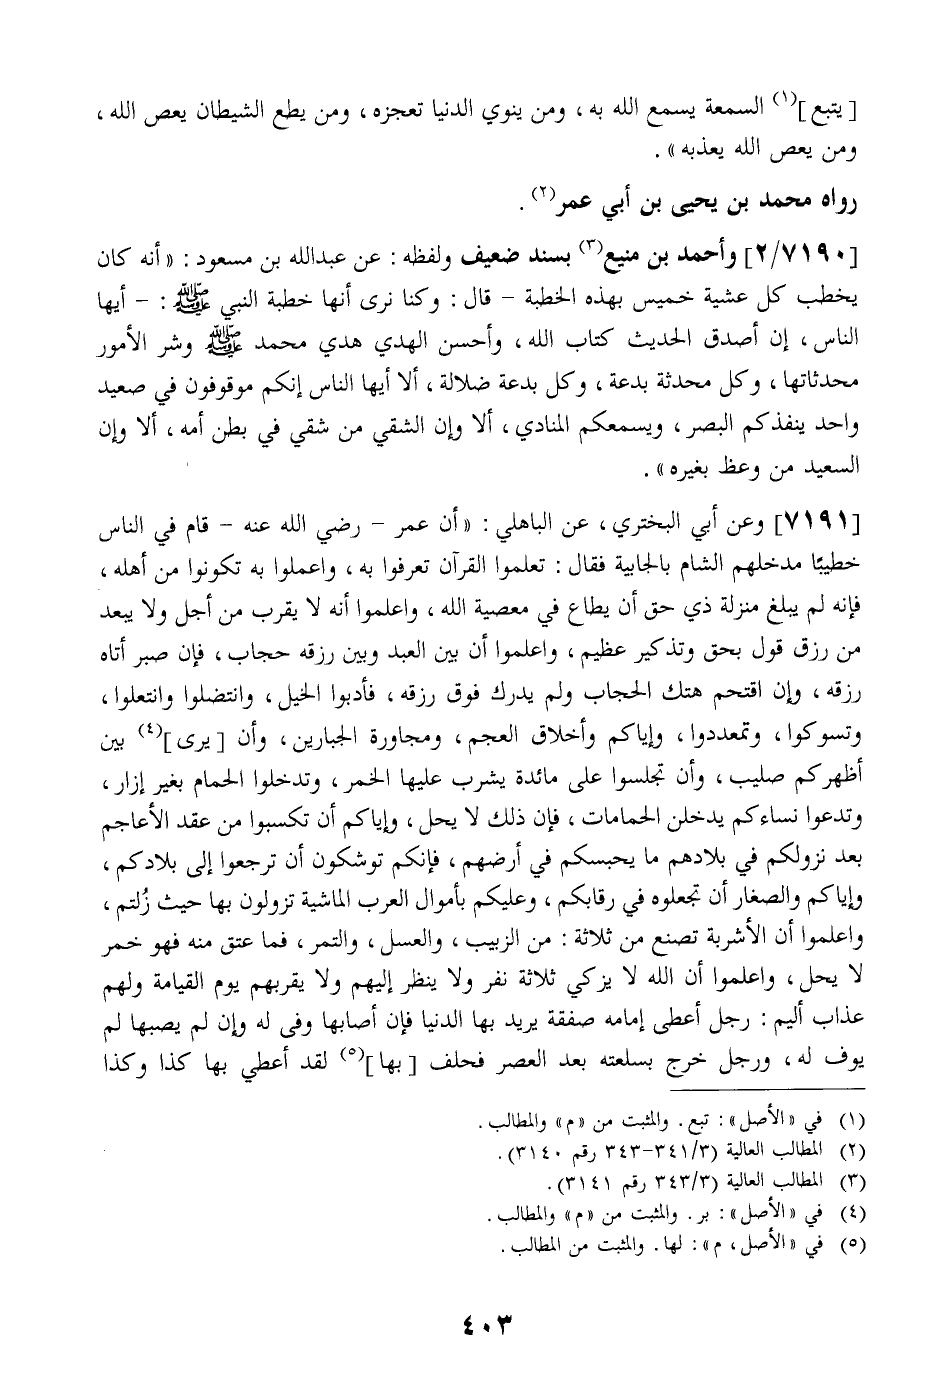 [يتبع](١) السمعة يسمع الله به، ومن ينوي الدنيا تعجزه، ومن يطع الشيطان يعص الله،
ومن يعص الله يعذبه».
رواه محمد بن يحيى بن أبي عمر(٢).
[٢/٧١٩٠] وأحمد بن منيع(٣) بسند ضعيف ولفظه: عن عبدالله بن مسعود: «أنه كان
يخطب كل عشية خميس بهذه الخطبة - قال: وكنا نرى أنها خطبة النبي ﷺ: - أيها
الناس، إن أصدق الحديث كتاب الله، وأحسن الهدي هدي محمد ﷺ وشر الأمور
محدثاتها، وكل محدثة بدعة، وكل بدعة ضلالة، ألا أيها الناس إنكم موقوفون في صعيد
واحد ينفذكم البصر، ويسمعكم المنادي، ألا وإن الشقي من شقي في بطن أمه، ألا وإن
السعيد من وعظ بغيره».
[٧١٩١] وعن أبي البختري، عن الباهلي: «أن عمر - رضي الله عنه - قام في الناس
خطيبًا مدخلهم الشام بالجابية فقال: تعلموا القرآن تعرفوا به، واعملوا به تكونوا من أهله،
فإنه لم يبلغ منزلة ذي حق أن يطاع في معصية الله، واعلموا أنه لا يقرب من أجل ولا يبعد
من رزق قول بحق وتذكير عظيم، واعلموا أن بين العبد وبين رزقه حجاب، فإن صبر أتاه
رزقه، وإن اقتحم هتك الحجاب ولم يدرك فوق رزقه، فأدبوا الخيل، وانتضلوا وانتعلوا،
وتسوكوا، وتمعددوا، وإياكم وأخلاق العجم، ومجاورة الجبارين، وأن [يرى](٤) بين
أظهركم صليب، وأن تجلسوا على مائدة يشرب عليها الخمر، وتدخلوا الحمام بغير إزار،
وتدعوا نساءكم يدخلن الحمامات، فإن ذلك لا يحل، وإياكم أن تكسبوا من عقد الأعاجم
بعد نزولكم في بلادهم ما يحبسكم في أرضهم، فإنكم توشكون أن ترجعوا إلى بلادكم،
وإياكم والصغار أن تجعلوه في رقابكم، وعليكم بأموال العرب الماشية تزولون بها حيث زُلتم،
واعلموا أن الأشربة تصنع من ثلاثة: من الزبيب، والعسل، والتمر، فما عتق منه فهو خمر
لا يحل، واعلموا أن الله لا يزكي ثلاثة نفر ولا ينظر إليهم ولا يقربهم يوم القيامة ولهم
عذاب أليم: رجل أعطى إمامه صفقة يريد بها الدنيا فإن أصابها وفى له وإن لم يصبها لم
يوف له، ورجل خرج بسلعته بعد العصر فحلف [بها](٥) لقد أعطي بها كذا وكذا
(١) في «الأصل»: تبع. والمثبت من «م» والمطالب.
(٢) المطالب العالية (٣/ ٣٤١-٣٤٣ رقم ٣١٤٠).
(٣) المطالب العالية (٣/ ٣٤٣ رقم ٣١٤١).
(٤) في «الأصل»: بر. والمثبت من «م» والمطالب.
(٥) في «الأصل، م»: لها. والمثبت من المطالب.
٤٠٣